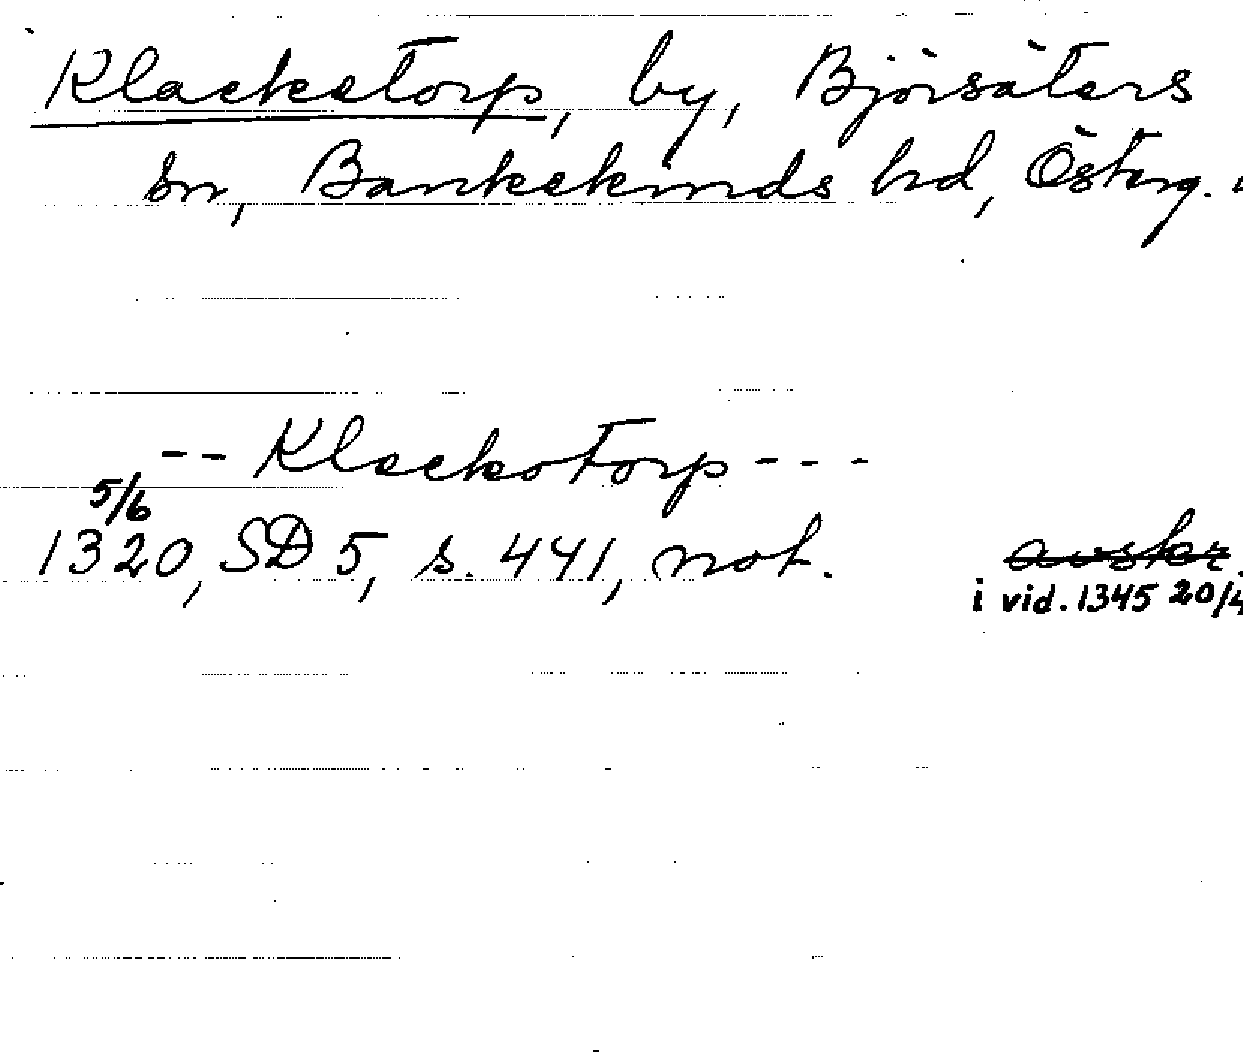 Klackstorp, by, Björsäters
sn, Bankekinds hd, Österg.
-- Klackstorp ---
5/6
1320, SD 5, s. 441, not. avskr.
i vid. 1345 20/4